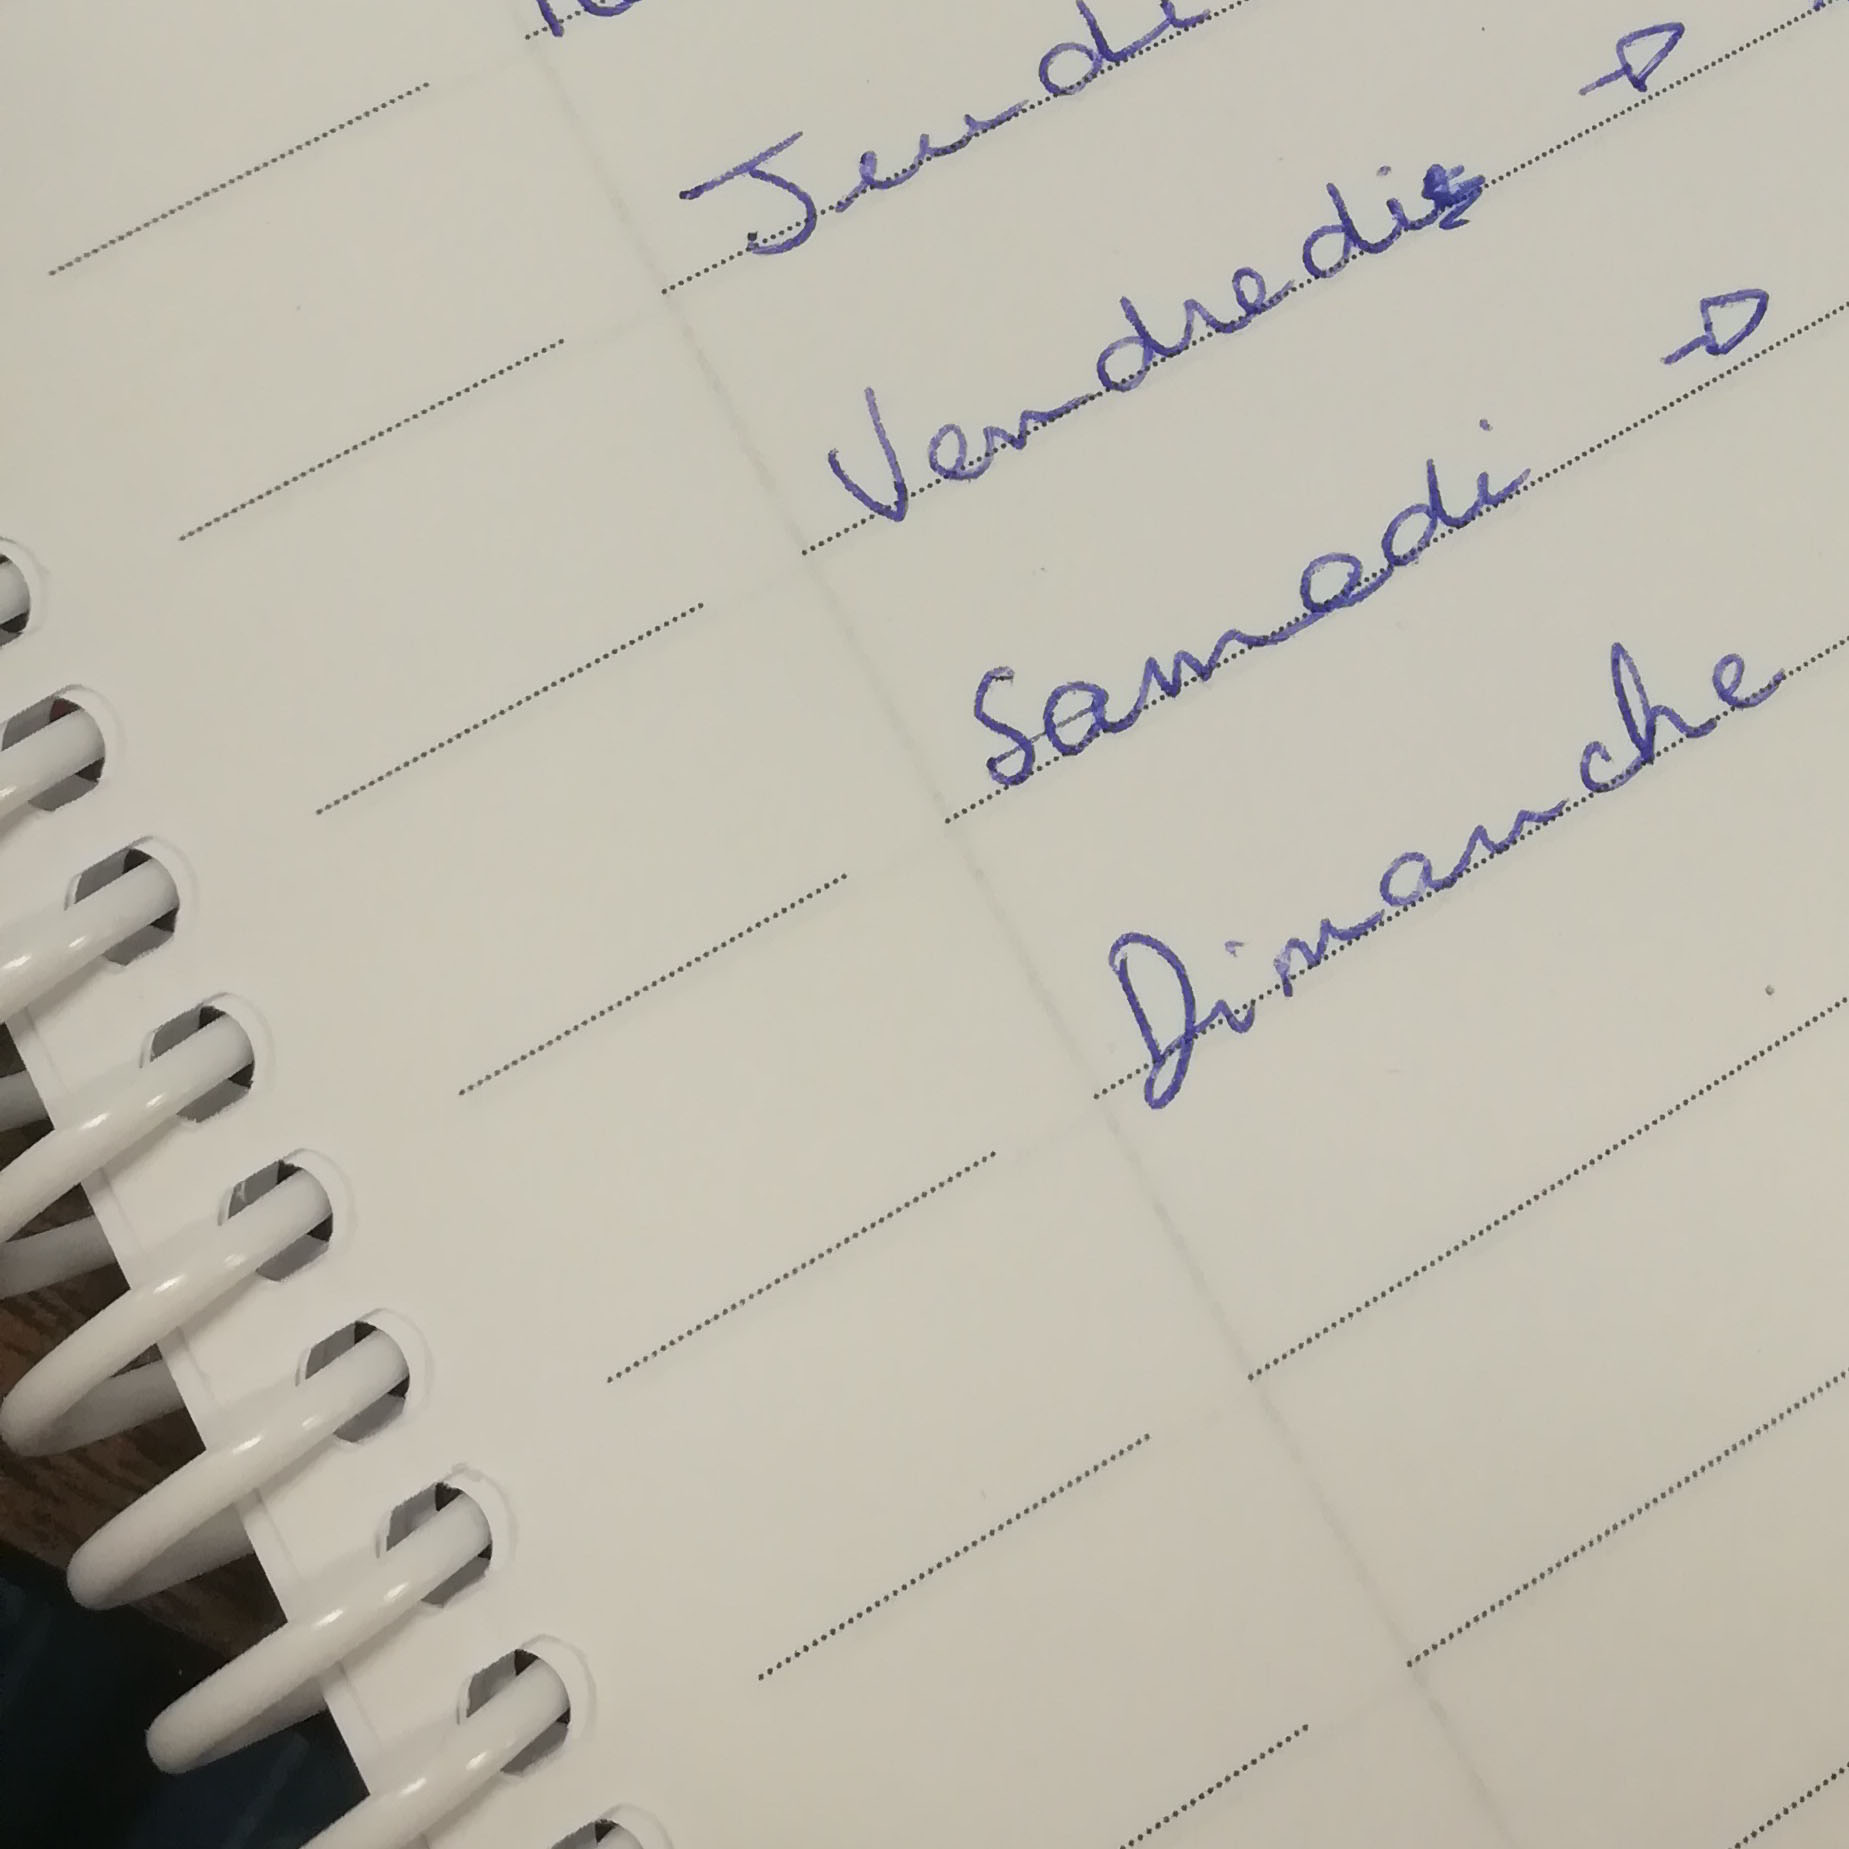 Jeudi
Vendredi →
Samedi →
Dimanche